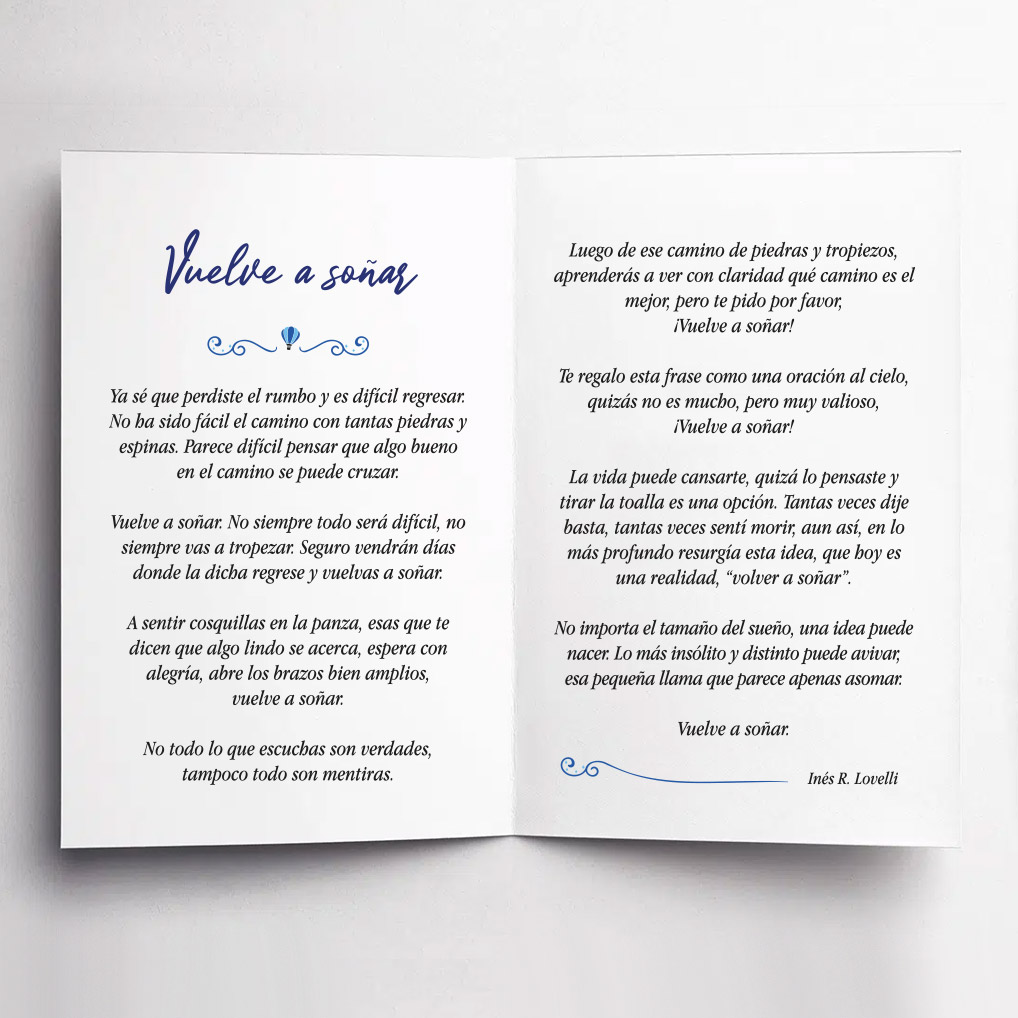 Vuelve a soñar
Ya sé que perdiste el rumbo y es difícil regresar.
No ha sido fácil el camino con tantas piedras y
espinas. Parece difícil pensar que algo bueno
en el camino se puede cruzar.
Vuelve a soñar. No siempre todo será difícil, no
siempre vas a tropezar. Seguro vendrán días
donde la dicha regrese y vuelvas a soñar.
A sentir cosquillas en la panza, esas que te
dicen que algo lindo se acerca, espera con
alegría, abre los brazos bien amplios,
vuelve a soñar.
No todo lo que escuchas son verdades,
tampoco todo son mentiras.
Luego de ese camino de piedras y tropiezos,
aprenderás a ver con claridad qué camino es el
mejor, pero te pido por favor,
¡Vuelve a soñar!
Te regalo esta frase como una oración al cielo,
quizás no es mucho, pero muy valioso,
¡Vuelve a soñar!
La vida puede cansarte, quizá lo pensaste y
tirar la toalla es una opción. Tantas veces dije
basta, tantas veces sentí morir, aun así, en lo
más profundo resurgía esta idea, que hoy es
una realidad, “volver a soñar”.
No importa el tamaño del sueño, una idea puede
nacer. Lo más insólito y distinto puede avivar,
esa pequeña llama que parece apenas asomar.
Vuelve a soñar.
Inés R. Lovelli